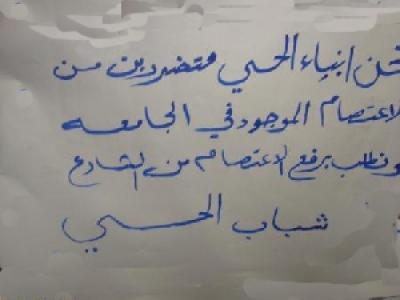 نحن ابناء الحي متضررين من
الاعتصام الموجود في الجامعه
ونطلب برفع الاعتصام من الشارع
شباب الحي